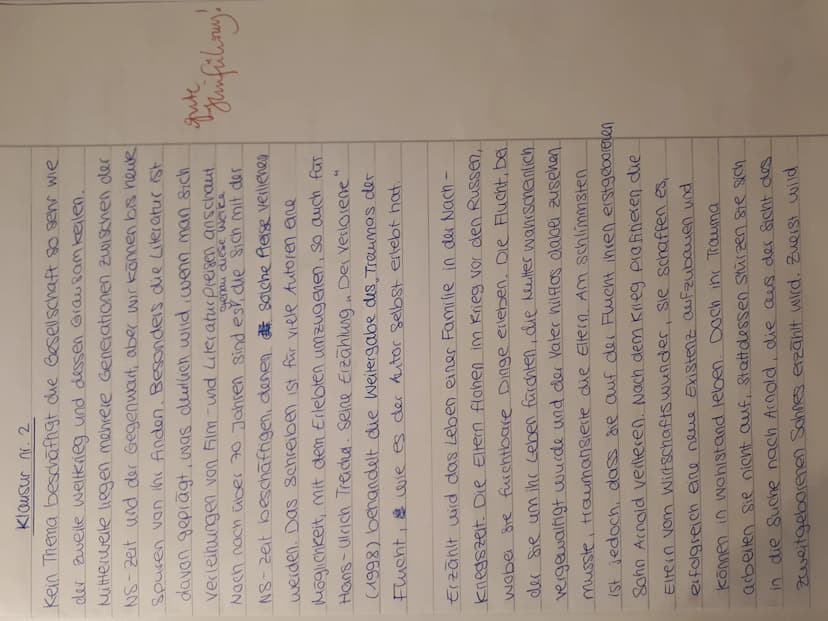 Klausur Nr. 2
Kein Thema beschäftigt die Gesellschaft so sehr wie
der zweite Weltkrieg und dessen Grausamkeiten.
Mittlerweile liegen mehrere Generationen zwischen der
NS-Zeit und der Gegenwart, aber wir können bis heute
Spuren von ihr finden. Besonders die Literatur ist
davon geprägt, was deutlich wird, wenn man sich
Verleihungen von Film- und Literaturpreisen anschaut.
genau diese Werke
Noch nach über 70 Jahren sind es, die sich mit der
NS-Zeit beschäftigen, denen solche Preise verliehen
werden. Das Schreiben ist für viele Autoren eine
Möglichkeit, mit dem Erlebten umzugehen, so auch für
Hans-Ulrich Treichel. Seine Erzählung „Der Verlorene"
(1998) behandelt die Weitergabe des Traumas der
Flucht, wie es der Autor selbst erlebt hat.
gute
Hinführung!
Erzählt wird das Leben einer Familie in der Nach-
kriegszeit. Die Eltern flohen im Krieg vor den Russen,
wobei sie furchtbare Dinge erleben. Die Flucht, bei
der sie um ihr Leben fürchten, die Mutter wahrscheinlich
vergewaltigt wurde und der Vater hilflos dabei zusehen
musste, traumatisierte die Eltern. Am schlimmsten
ist jedoch, dass sie auf der Flucht ihren erstgeborenen
Sohn Arnold verlieren. Nach dem Krieg profitieren die
Eltern vom Wirtschaftswunder, sie schaffen es,
erfolgreich eine neue Existenz aufzubauen und
können in Wohlstand leben. Doch ihr Trauma
arbeiten sie nicht auf, stattdessen stürzen sie sich
in die Suche nach Arnold, die aus der Sicht des
zweitgeborenen Sohnes erzählt wird. Zuerst wird